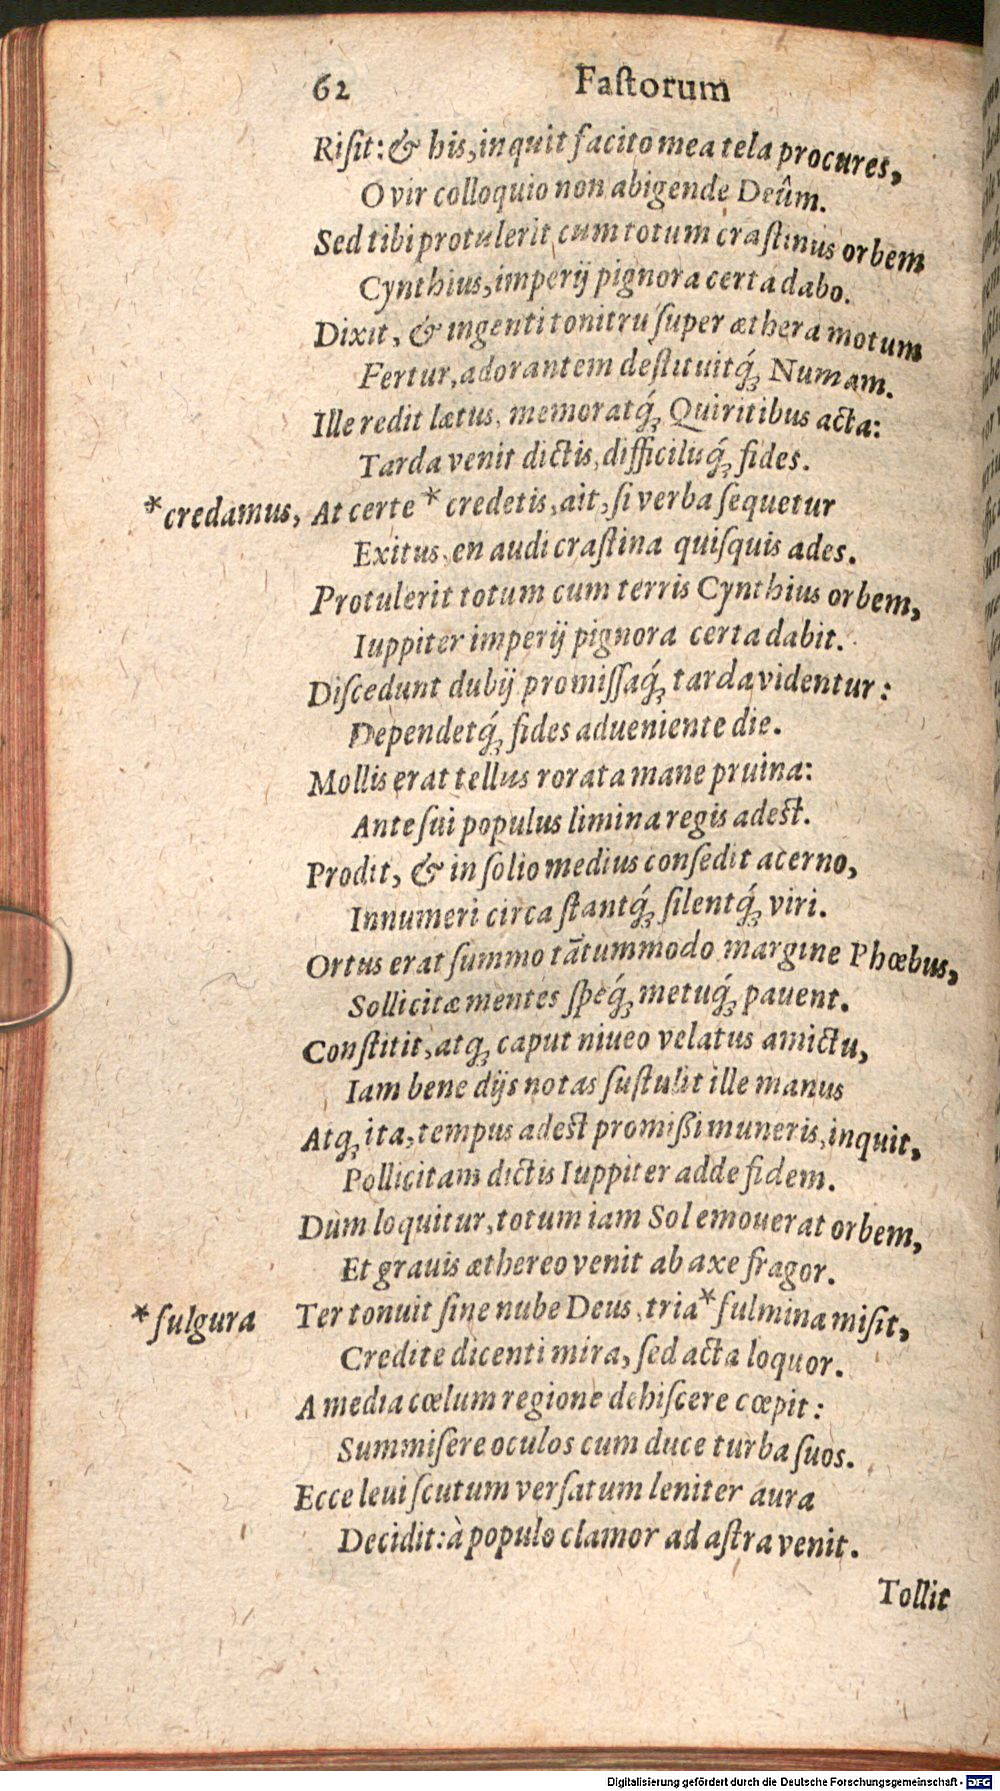 62 Faſtorum
Riſit: & his, inquit facito mea tela procures,
O vir colloquio non abigende Deûm.
Sed tibi protulerit cum totum craſtinus orbem
Cynthius, imperij pignora certa dabo.
Dixit, & ingenti tonitru ſuper æthera motum
Fertur, adorantem deſtituitq́ꝫ Numam.
Ille redit lætus, memoratq́ꝫ Quiritibus acta:
Tarda venit dictis, difficiliuq́ꝫ fides.
*credamus, At certe * credetis, ait, ſi verba ſequetur
Exitus, en audi craſtina quiſquis ades.
Protulerit totum cum terris Cynthius orbem,
Iuppiter imperij pignora certa dabit.
Diſcedunt dubij promiſſaq́ꝫ tarda videntur:
Dependetq́ꝫ fides adueniente die.
Mollis erat tellus rorata mane pruina:
Ante ſui populus limina regis adeſt.
Prodit, & in ſolio medius conſedit acerno,
Innumeri circa ſtantq́ꝫ ſilentq́ꝫ viri.
Ortus erat ſummo tãtummodo margine Phœbus,
Sollicitæ mentes ſpeq́ꝫ metuq́ꝫ pauent.
Conſtitit, atqꝫ caput niueo velatus amictu,
Iam bene dijs notas ſuſtulit ille manus
Atqꝫ ita, tempus adeſt promißi muneris, inquit,
Pollicitam dictis Iuppiter adde fidem.
Dum loquitur, totum iam Sol emouerat orbem,
Et grauis æthereo venit ab axe fragor.
*fulgura Ter tonuit ſine nube Deus, tria * fulmina miſit,
Credite dicenti mira, ſed acta loquor.
A media cœlum regione dehiſcere cœpit:
Summiſere oculos cum duce turba ſuos.
Ecce leui ſcutum verſatum leniter aura
Decidit: à populo clamor ad aſtra venit.
Tollit
Digitalisierung gefördert durch die Deutsche Forschungsgemeinschaft - DFG